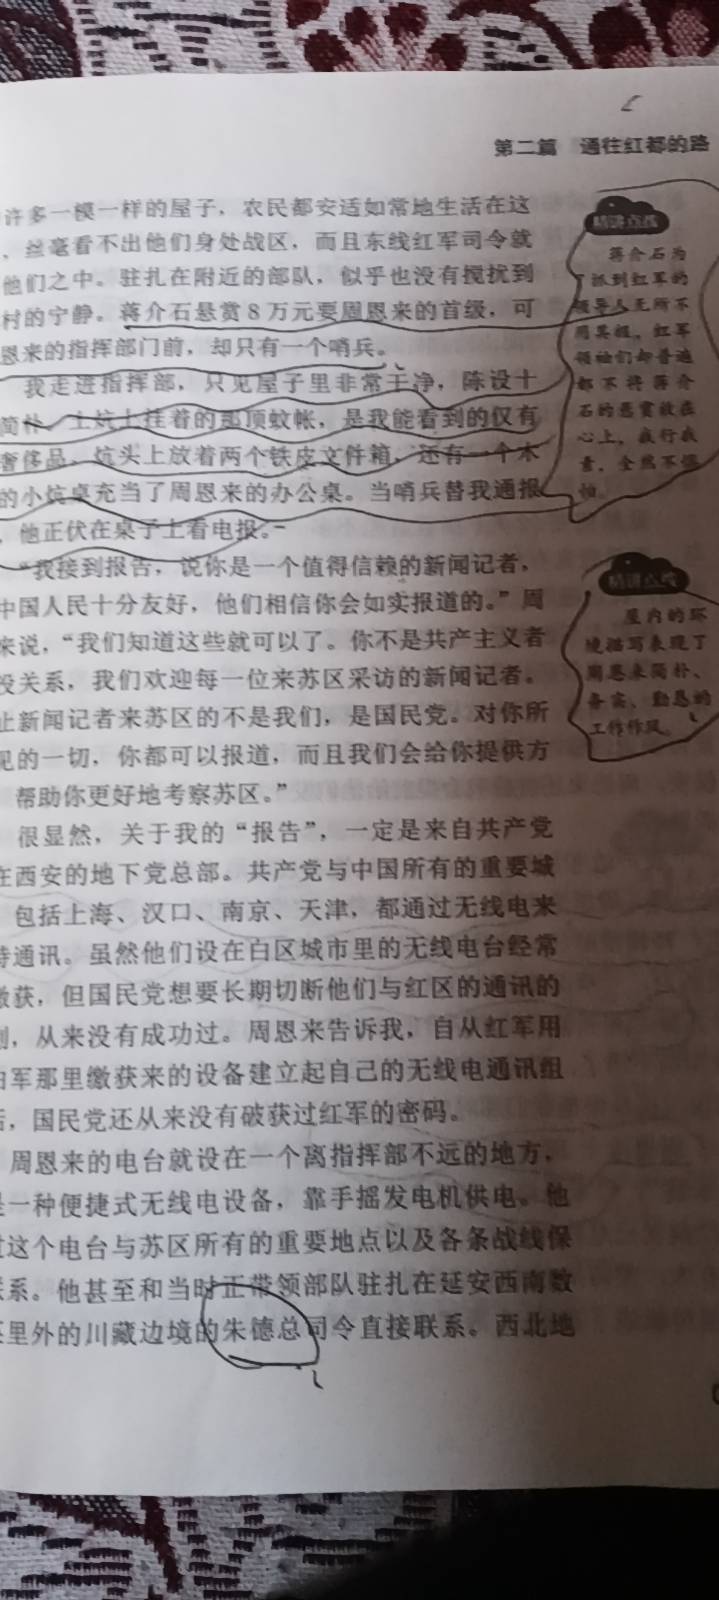 第二篇 通往红都的路
许多一模一样的屋子，农民都安适如常地生活在这
、丝毫看不出他们身处战区，而且东线红军司令就
他们之中。驻扎在附近的部队，似乎也没有搅扰到
村的宁静。蒋介石悬赏8万元要周恩来的首级，可
恩来的指挥部门前，却只有一个哨兵。
我走进指挥部，只见屋子里非常干净，陈设十
简朴。土炕上挂着的那顶蚊帐，是我能看到的仅有
奢侈品。炕头上放着两个铁皮文件箱，还有一个木
的小炕桌充当了周恩来的办公桌。当哨兵替我通报
，他正伏在桌子上看电报。
“我接到报告，说你是一个值得信赖的新闻记者，
中国人民十分友好，他们相信你会如实报道的。”周
来说，“我们知道这些就可以了。你不是共产主义者
没关系，我们欢迎每一位来苏区采访的新闻记者。
止新闻记者来苏区的不是我们，是国民党。对你所
见的一切，你都可以报道，而且我们会给你提供方
帮助你更好地考察苏区。”
很显然，关于我的“报告”，一定是来自共产党
在西安的地下党总部。共产党与中国所有的重要城
包括上海、汉口、南京、天津，都通过无线电来
持通讯。虽然他们设在白区城市里的无线电台经常
缴获，但国民党想要长期切断他们与红区的通讯的
划，从来没有成功过。周恩来告诉我，自从红军用
白军那里缴获来的设备建立起自己的无线电通讯组
后，国民党还从来没有破获过红军的密码。
周恩来的电台就设在一个离指挥部不远的地方，
是一种便捷式无线电设备，靠手摇发电机供电。他
过这个电台与苏区所有的重要地点以及各条战线保
系。他甚至和当时正带领部队驻扎在延安西南数
里外的川藏边境的朱德总司令直接联系。西北地
精讲点拨
蒋介石为
了抓到红军的
领导人无所不
用其极，红军
领袖们却普遍
都不将蒋介
石的悬赏放在
心上，我行我
素，全然不惧
怕。
精讲点拨
屋内的环
境描写表现了
周恩来简朴、
务实、勤恳的
工作作风。